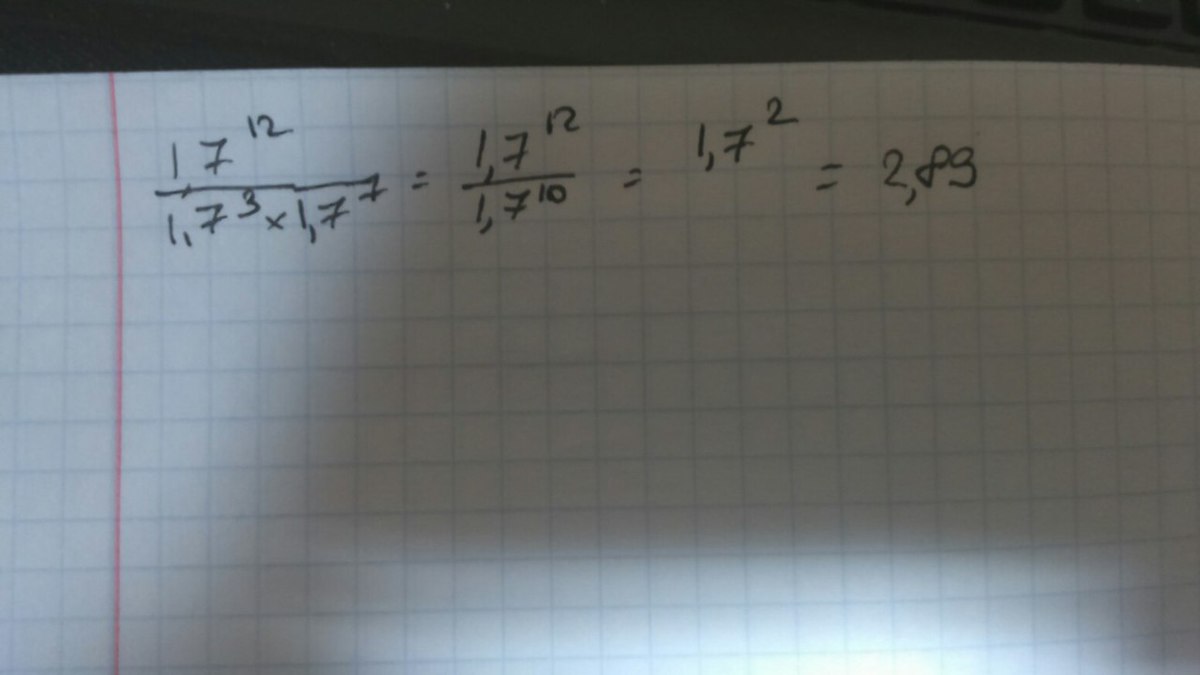 1,7^12 / (1,7^3 × 1,7^7) = 1,7^12 / 1,7^10 = 1,7^2 = 2,89